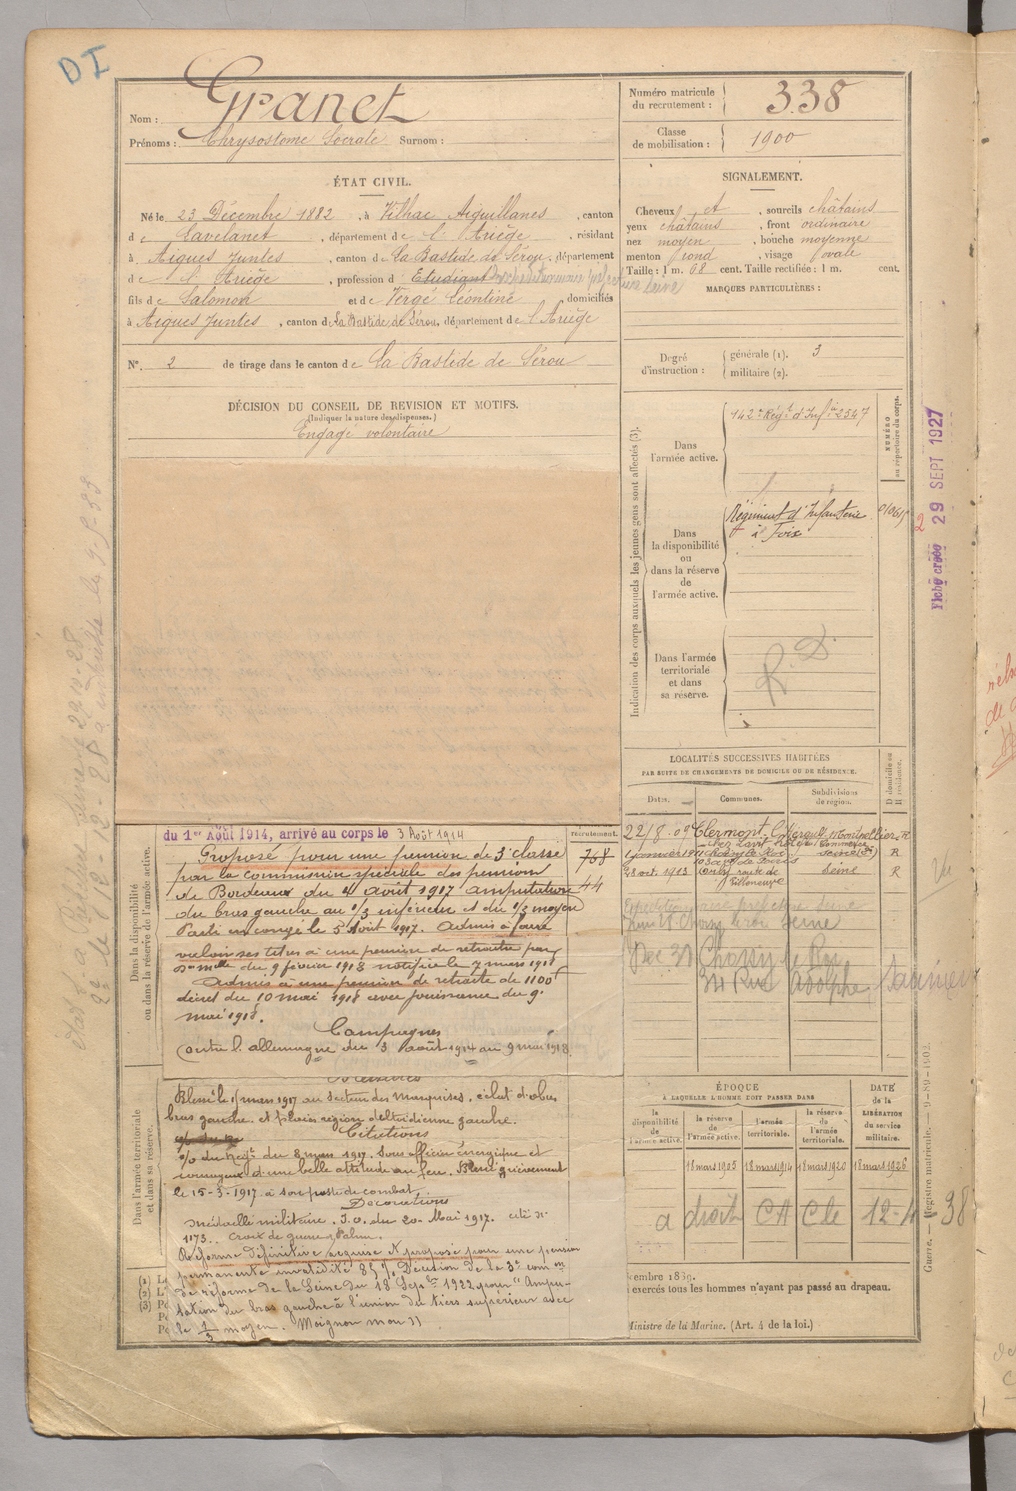 DI
Nom : Granet
Prénoms : Chrysostome Socrate Surnom :
Numéro matricule du recrutement : 338
Classe de mobilisation : 1900
ÉTAT CIVIL.
Né le 23 Décembre 1882, à Vilhac Aiguillanes, canton
de Lavelanet, département de l'Ariège, résidant
à Aigues Juntes, canton de La Bastide de Sérou, département
de l'Ariège, profession d'Etudiant Expéditionnaire préfecture Seine
fils de Salomon et de Vergé Léontine domiciliés
à Aigues Juntes, canton de La Bastide de Sérou, département de l'Ariège
N° 2 de tirage dans le canton de La Bastide de Sérou
DÉCISION DU CONSEIL DE REVISION ET MOTIFS.
(Indiquer la nature des dispenses.)
Engagé volontaire
SIGNALEMENT.
Cheveux et, sourcils châtains
yeux châtains, front ordinaire
nez moyen, bouche moyenne
menton rond, visage ovale
Taille : 1 m. 68 cent. Taille rectifiée : 1 m. cent.
MARQUES PARTICULIÈRES :
Degré d'instruction : générale (1). 3
militaire (2).
Indication des corps auxquels les jeunes gens sont affectés (3).
NUMÉRO au répertoire du corps.
Dans l'armée active.
142e Régt d'Infie 2547
Dans la disponibilité ou dans la réserve de l'armée active.
Régiment d'Infanterie
à Foix
Dans l'armée territoriale et dans sa réserve.
R.D.
Fiche créée 29 SEPT 1927
2
LOCALITÉS SUCCESSIVES HABITÉES
PAR SUITE DE CHANGEMENTS DE DOMICILE OU DE RÉSIDENCE.
Dates. Communes. Subdivisions de région. D domicile ou R résidence.
22/8-09 Clermont-l'Hérault Montpellier R
1 janvier 1911
Seine R
28 oct. 1913 Orly route de Villeneuve Seine R
Expéditionnaire préfecture Seine
Choisy le roi Seine
Dec 30 Choisy le Roi
34 Rue Adolphe
Dans la disponibilité ou dans la réserve de l'armée active.
du 1er Août 1914, arrivé au corps le 3 Août 1914
recrutement.
768
44
Proposé pour une pension de 3e classe
par la commission spéciale des pensions
de Bordeaux du 4 août 1917 amputation
du bras gauche au 1/3 inférieur et du 1/3 moyen
Parti en congé le 5 Août 1917. Admis à faire
valoir ses titres à une pension de retraite par
Don Mlle du 9 février 1918 notifiée le 7 mars 1918
Admis à une pension de retraite de 1100f
décret du 10 mai 1918 avec jouissance du 9
mai 1918.
Campagnes
Contre l'allemagne du 3 août 1914 au 9 mai 1918
Dans l'armée territoriale et dans sa réserve.
Blessures
Blessé le 15 mars 1917 au secteur des Marquises, éclat d'obus
bras gauche et plaie région deltoïdienne gauche.
Citations
o/o du Régt du 8 mars 1917. Sous officier énergique et
courageux d'une belle attitude au feu. Blessé grièvement
le 15-3-1917 à son poste de combat.
Décorations
Médaille militaire. J.O. du 20 Mai 1917. cité n°
1173. Croix de guerre Palme.
Réforme définitive acquise et proposé pour une pension
permanente invalidité 85%. Décision de la 3e comon
de réforme de la Seine du 18 Sepbre 1922 pour "Ampu-
tation du bras gauche à l'union du tiers supérieur avec
le 1/3 moyen. Moignon
ÉPOQUE
À LAQUELLE L'HOMME DOIT PASSER DANS
DATE de la LIBÉRATION du service militaire.
la disponibilité de l'armée active. la réserve de l'armée active. l'armée territoriale. la réserve de l'armée territoriale.
18 mars 1905 18 mars 1914 18 mars 1920 18 mars 1926
a droit CA Cle 12-4-38
cembre 1889.
exercés tous les hommes n'ayant pas passé au drapeau.
Ministre de la Marine. (Art. 4 de la loi.)
Guerre. — Registre matricule. — 9-89-1902.